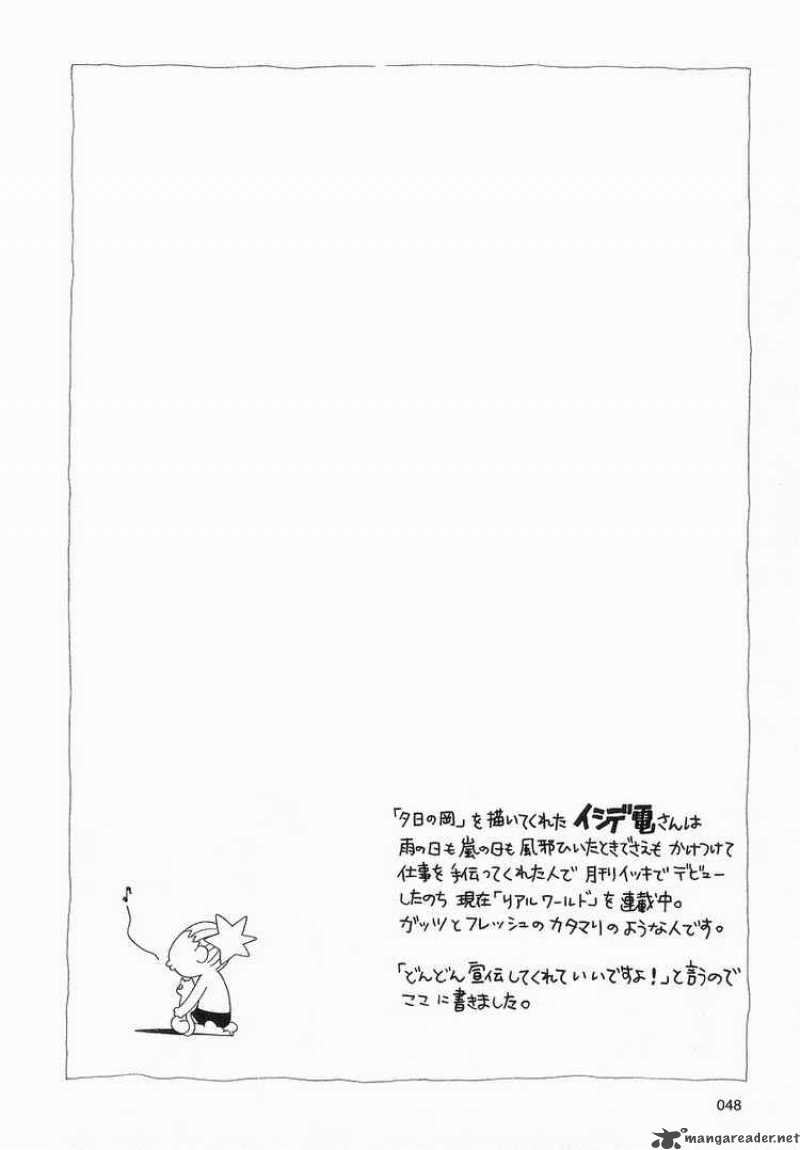 「夕日の岡」を描いてくれた イシデ電さんは
雨の日も嵐の日も風邪ひいたときでさえも かけつけて
仕事を手伝ってくれた人で 月刊イッキでデビュー
したのち 現在「リアルワールド」を連載中。
ガッツとフレッシュのカタマリのような人です。
「どんどん宣伝してくれていいですよ!」と言うので
ここに書きました。
048
mangareader.net